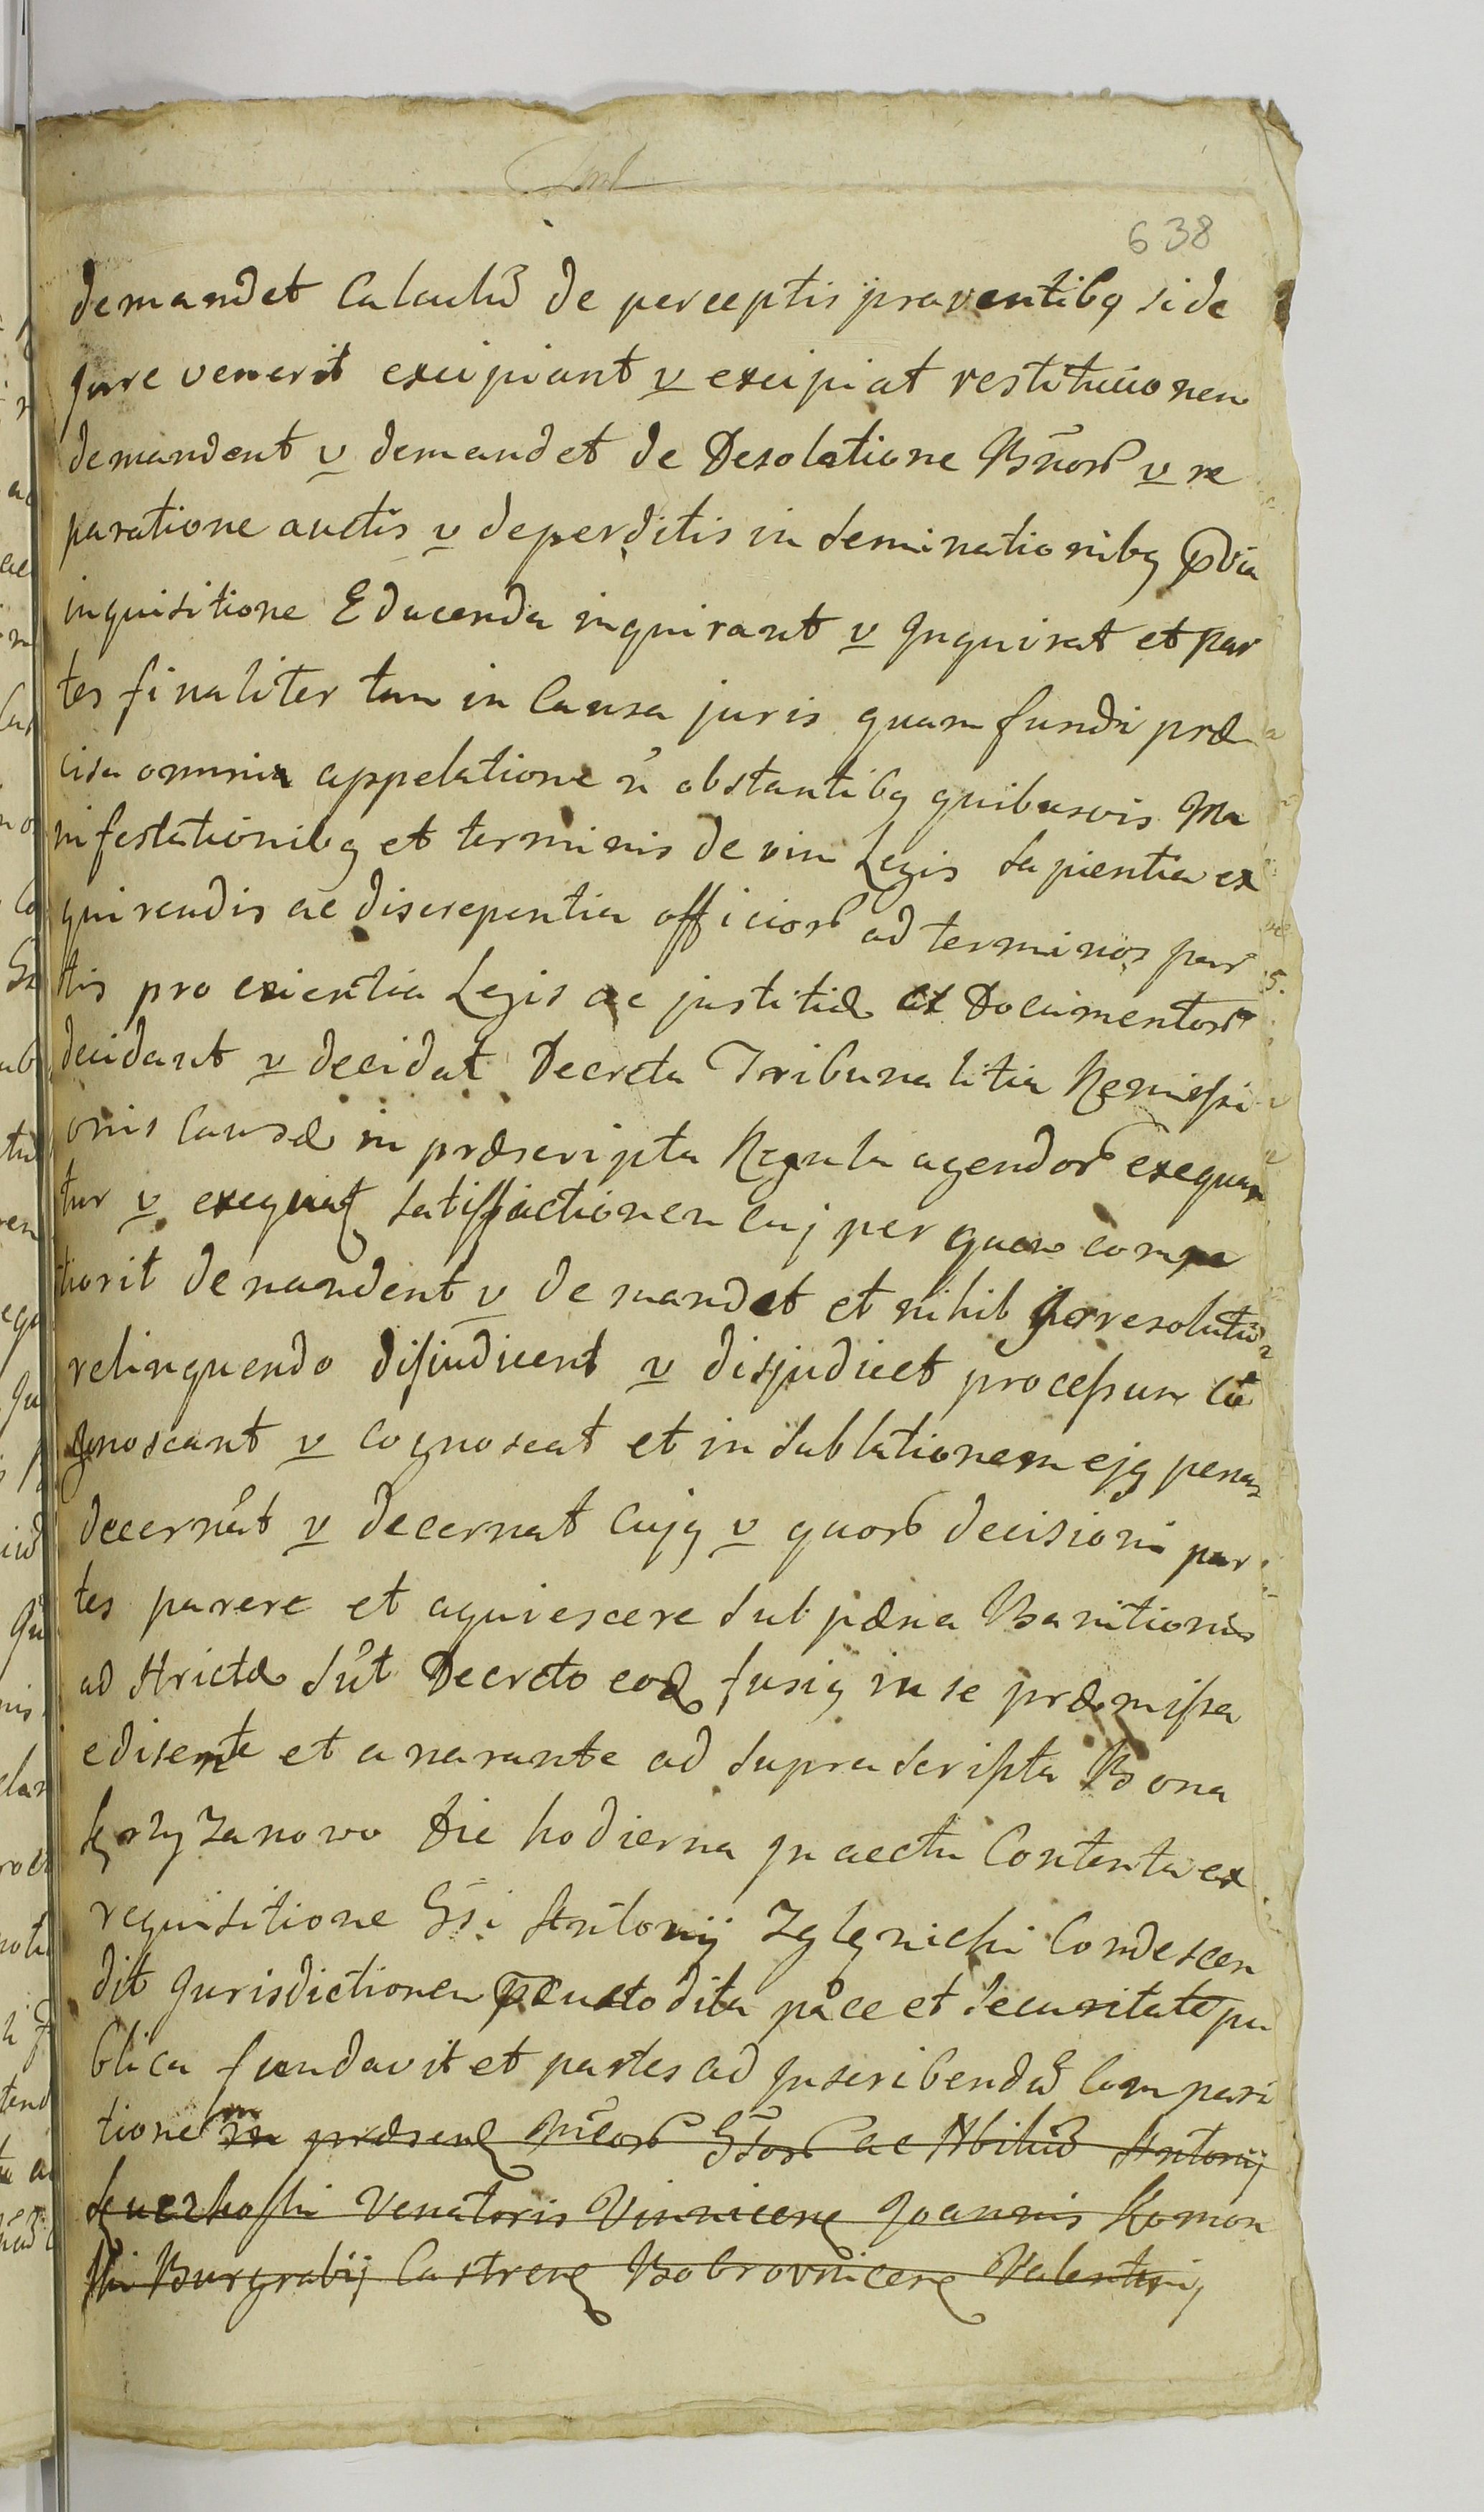 638
demandet Calculū de perceptis proventibq side
Jure venerit excipiant v excipiat restitucionem
demandent v demandet de Desolatione Bnor v re
paratione auctis v deperditis in seminationibq pvia
inquisitione Educenda inquirant v Inquirat et par
tes finaliter tam in Causa juris quam fundi præ
cisa omnia appelatione ñ obstantibq quibusvis Ma
nifestationibq et terminis de vim Legis sapientia ex
quirendis ac discrepentia officior ad terminos par
tis pro exientia Legis ac justitiæ et Documentor
decidant v decidat Decreta Tribunalitia Remissi
onis Causæ in præscripta Regula agendor exequan
tur v exequat satisfactionem cuj per quem compe
tiorit demandent v demandet et nihil Irresolutū
relinquendo disiudicent v disjudicet processum co
gnoscant v cognoscat et in sublationem ejq penas
decernāt v decernat cujq v quor decisioni par
tes parere et aquiescere sub pæna Banitionis
ad strictæ sūt Decreto eod fusiq in se præmissa
edisente et enarante ad suprascripta Bona
Krzyżanowo Die hodierna In actu Contenta ex
requisitione Gsi Antonij Zglenicki Condescen
dit Jurisdictionem pcustodita pace et securitate pu
blica fundavit et partes ad Inscribendū Compari
tionem in præsent Mcor Gsor ac Nbiliū Antonij
Venatoris Vinnicens Joannis Komor
ski Burgrabij Castrens Bobrovnicens Valentinj